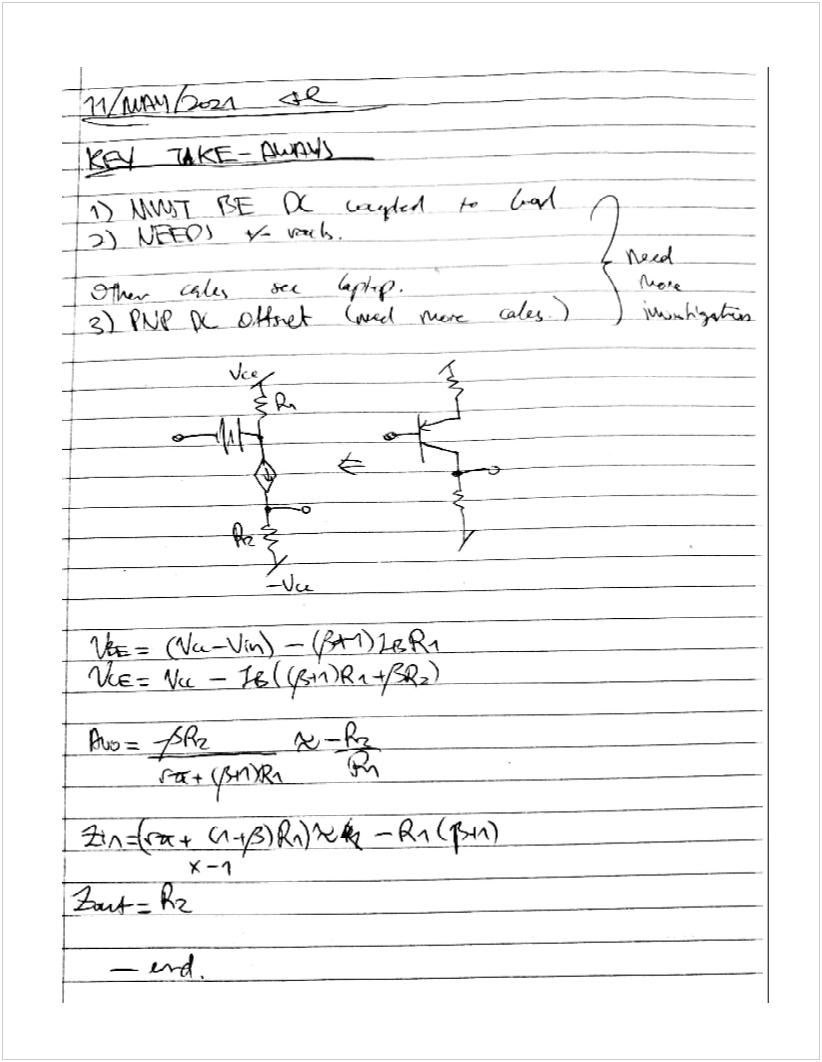 11/MAY/2021
KEY TAKE-AWAYS
1) MUST BE DC coupled to load
2) NEEDS +/-
Other calcs see laptop.
3) PNP DC Offset (need more calcs.)
need
more
investigation
Vcc
R1
R2
-Vcc
VBE = (Vcc-Vin) - (β+1)IBR1
VCE = Vcc - IB((β+1)R1+βR2)
Avo = -βR2 / rπ+(β+1)R1 ≈ -R2/R1
Zin=(rπ+ (1+β)R1)≈ -R1(β+1)
x-1
Zout = R2
— end.